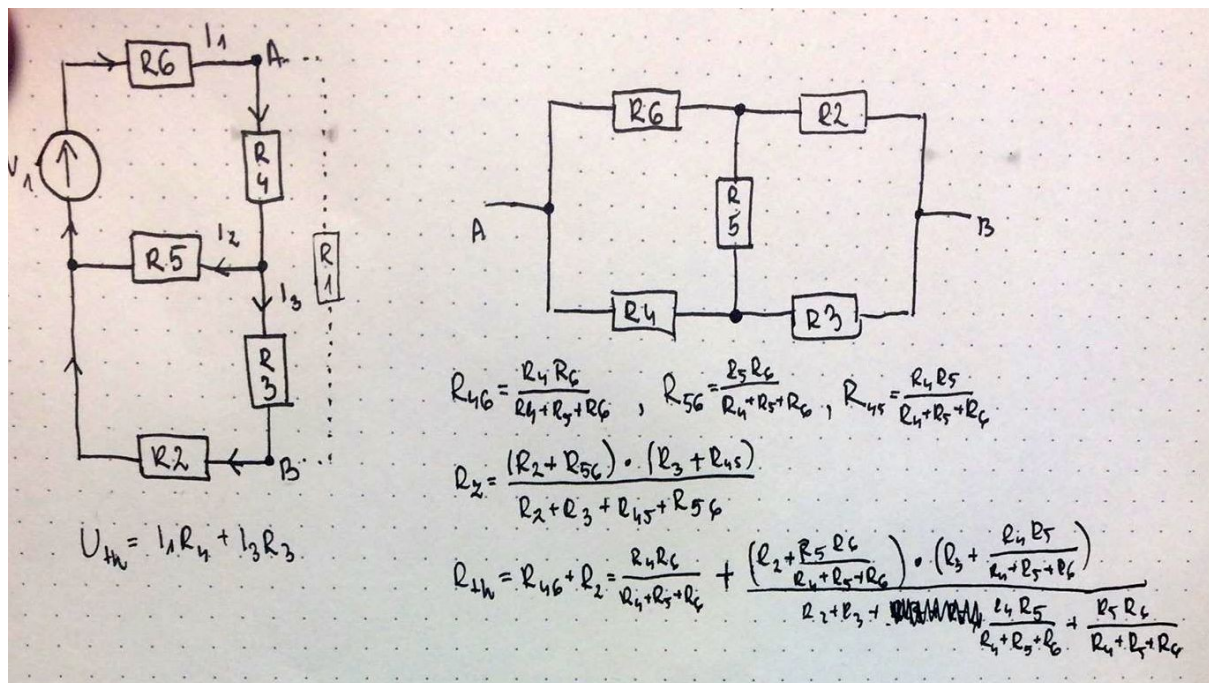 R6 I₁ A
V1
R4
R5 I₂
R1
I₃
R3
R2 B
U_th = I₁R₄ + I₃R₃
R6 R2
A R5 B
R4 R3
R₄₆ = R₄R₆/(R₄+R₅+R₆) , R₅₆ = R₅R₆/(R₄+R₅+R₆) , R₄₅ = R₄R₅/(R₄+R₅+R₆)
R_z = (R₂+R₅₆)·(R₃+R₄₅)/(R₂+R₃+R₄₅+R₅₆)
R_th = R₄₆+R_z = R₄R₆/(R₄+R₅+R₆) + (R₂+R₅R₆/(R₄+R₅+R₆))·(R₃+R₄R₅/(R₄+R₅+R₆))/(R₂+R₃+R₄R₅/(R₄+R₅+R₆)+R₅R₆/(R₄+R₅+R₆))